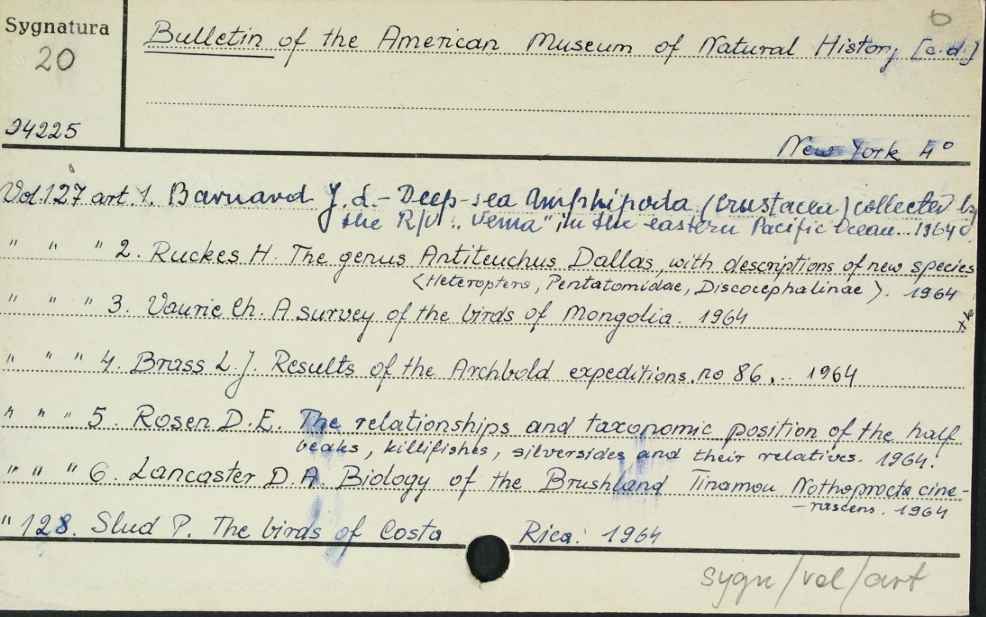 Sygnatura
20
24225
6
Bulletin of the American Museum of Natural History [c.d.]
New York 4°
Vol. 127 art. 1. Barnard J. L. - Deep-sea Amphipoda (Crustacea) collected by
the R/V „Vema" in the eastern Pacific Ocean.. 1964
" " " 2. Ruckes H. The genus Antiteuchus Dallas, with descriptions of new species
(Heteroptera, Pentatomidae, Discocephalinae). 1964
" " " 3. Vaurie Ch. A survey of the birds of Mongolia. 1964
" " " 4. Brass L. J. Results of the Archbold expeditions. no 86... 1964
" " " 5. Rosen D. E. The relationships and taxonomic position of the half
beaks, killifishes, silversides and their relatives. 1964.
" " " 6. Lancaster D. A. Biology of the Brushland Tinamou Nothoprocta cine-
-rascens. 1964
" 128. Slud P. The birds of Costa Rica. 1964
sygn/vol/art